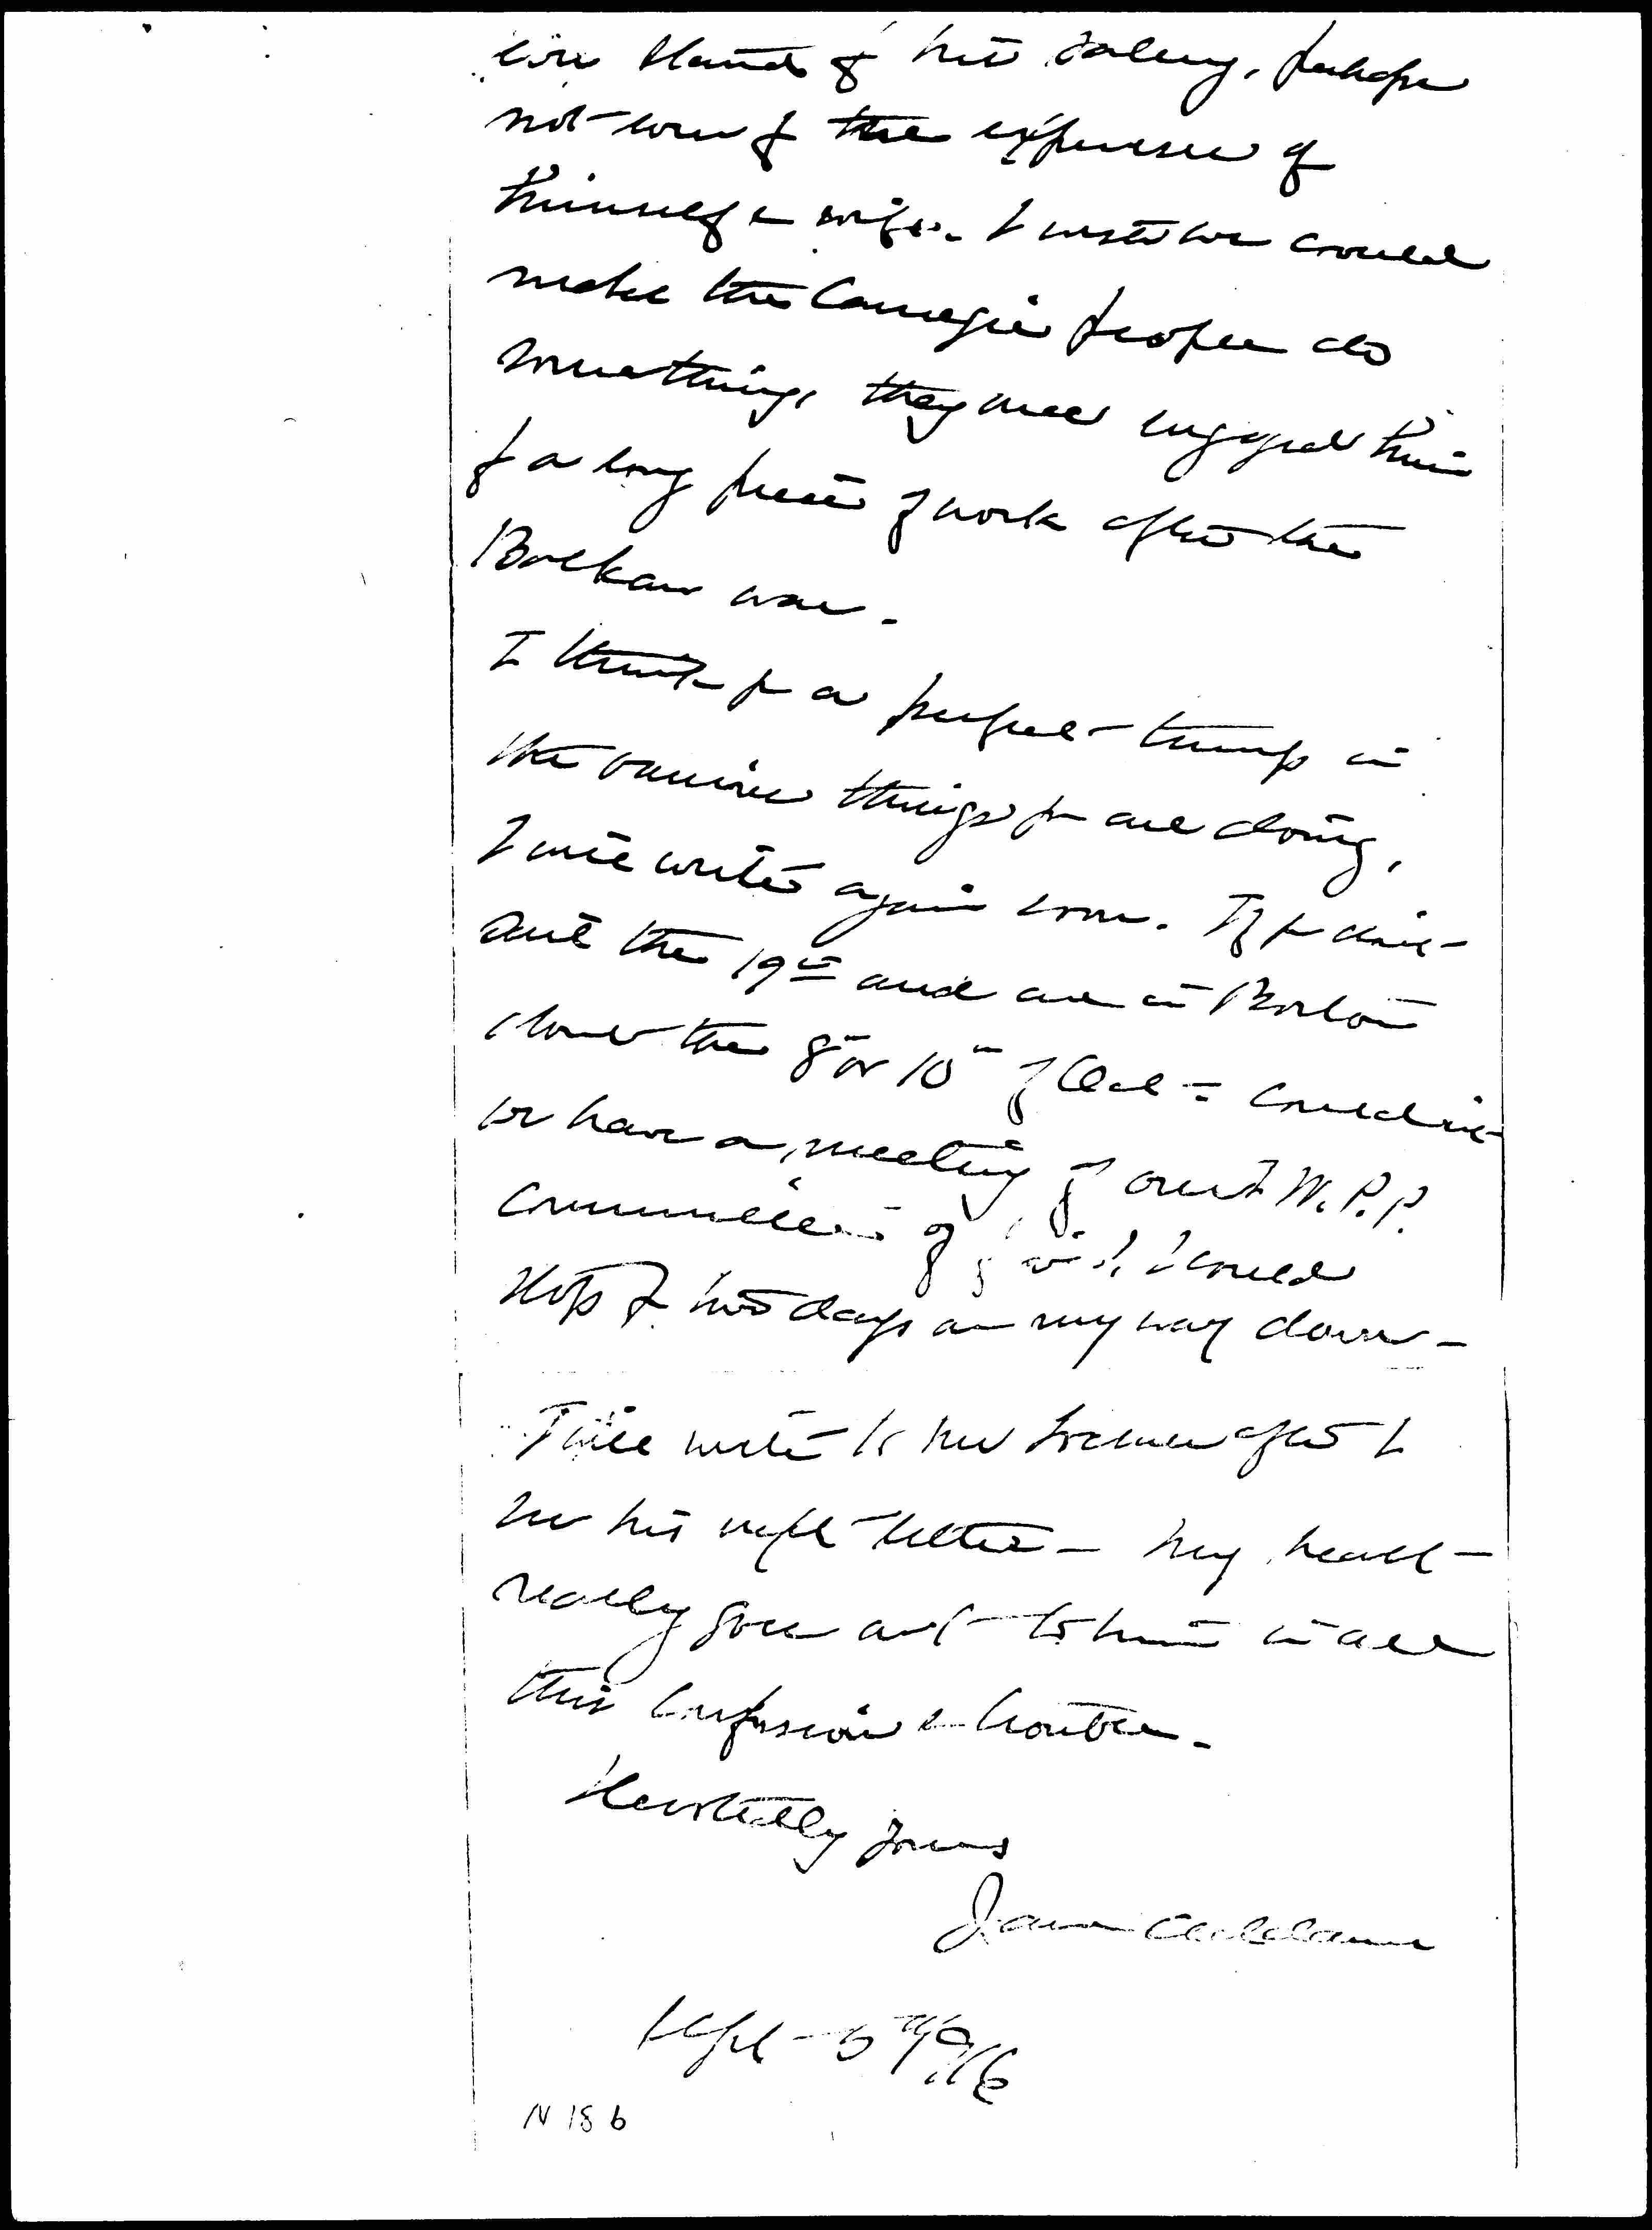 stand for his salary, perhaps
not even for the expenses of
himself & wife. I wish we could
make the Carnegie people do
something, they once engaged him
for a long piece of work after the
Balkan war.
I think yr a perfect trump in
the various things yr are doing,
I will write again soon. If yr don't
sail the 19th and are in Boston
about the 8th or 10th of Oct = could we
have a meeting of our W.P.P.
committee I could
stop for two days on my way down –
I will write to after I
see his next letter – my heart
really goes out to him in all
this confusion & trouble.
Devotedly yours
Jane Addams
Sept – 5" 1916
N 186